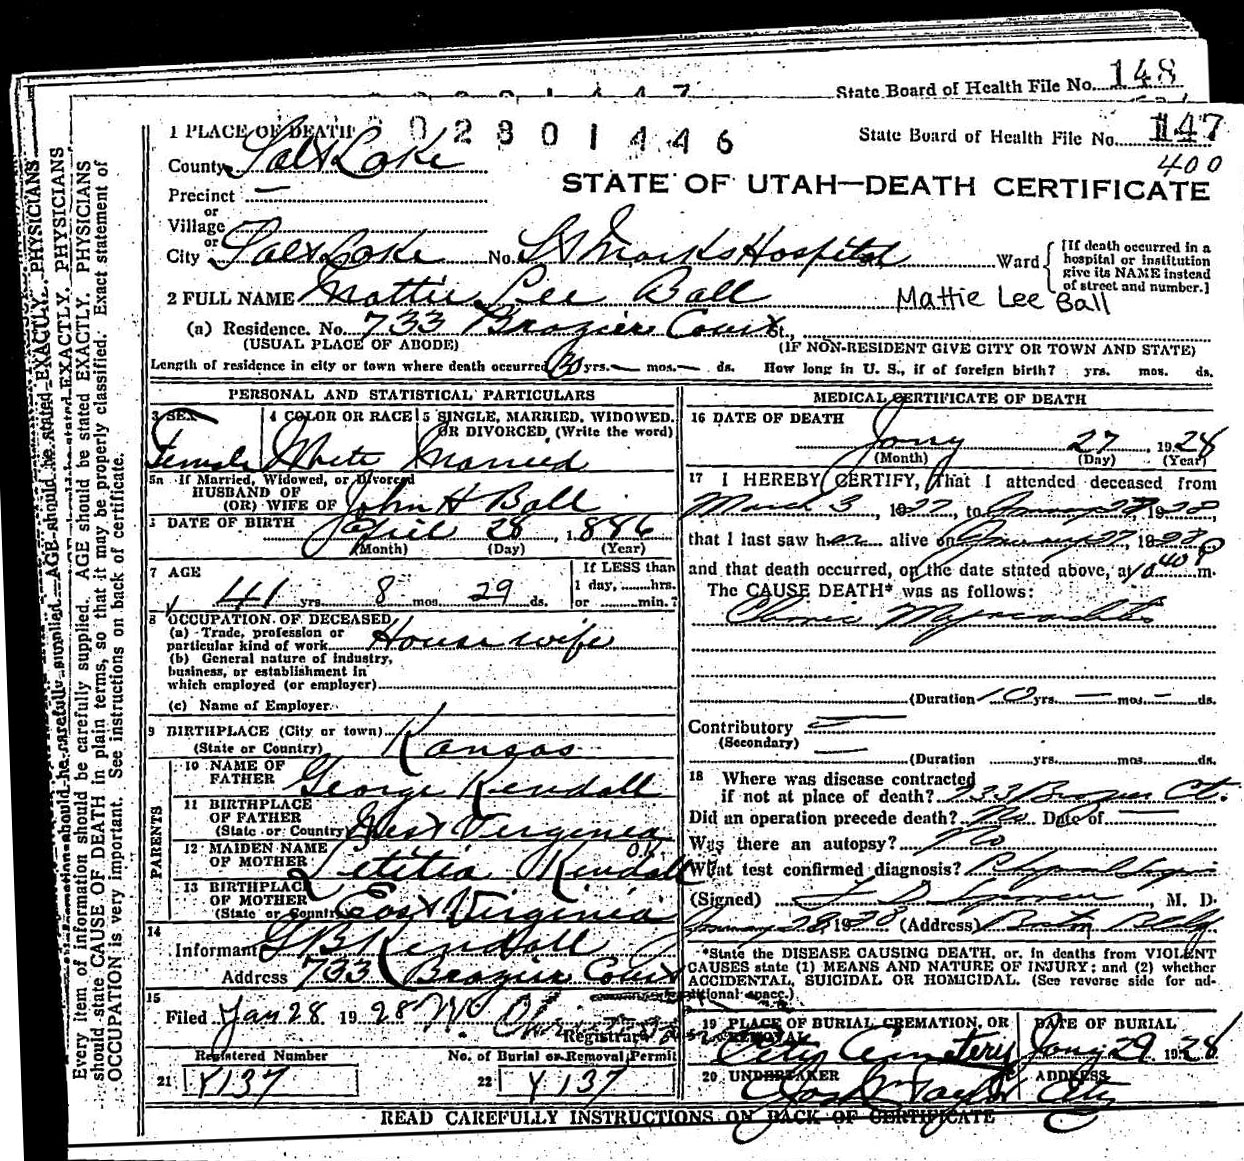 State Board of Health File No. 148
1 PLACE OF DEATH 2 0 2 8 0 1 4 4 6 State Board of Health File No. 147
County Salt Lake 400
Precinct —
STATE OF UTAH—DEATH CERTIFICATE
or
Village
or
City Salt Lake No. St Marks Hospital Ward [If death occurred in a hospital or institution give its NAME instead of street and number.]
2 FULL NAME Mattie Lee Ball Mattie Lee Ball
(a) Residence. No. 733 Brazier Court St.,
(USUAL PLACE OF ABODE) (IF NON-RESIDENT GIVE CITY OR TOWN AND STATE)
Length of residence in city or town where death occurred yrs. — mos. — ds. How long in U. S., if of foreign birth? yrs. mos. ds.
PERSONAL AND STATISTICAL PARTICULARS
3 SEX 4 COLOR OR RACE 5 SINGLE, MARRIED, WIDOWED, OR DIVORCED, (Write the word)
Female White Married
5a If Married, Widowed, or Divorced
HUSBAND OF
(OR) WIFE OF John H Ball
6 DATE OF BIRTH April 28, 1886
(Month) (Day) (Year)
7 AGE If LESS than
41 yrs. 8 mos. 29 ds. 1 day, hrs.
or min.?
8 OCCUPATION OF DECEASED
(a) Trade, profession or
particular kind of work Housewife
(b) General nature of industry,
business, or establishment in
which employed (or employer)
(c) Name of Employer
9 BIRTHPLACE (City or town)
(State or Country) Kansas
PARENTS
10 NAME OF
FATHER George Kendall
11 BIRTHPLACE
OF FATHER
(State or Country) West Virginia
12 MAIDEN NAME O.K.
OF MOTHER Letitia Kendall
13 BIRTHPLACE
OF MOTHER
(State or Country) East Virginia
14
Informant G B Kendall
Address 733 Brazier Court
15
Filed Jan 28 1928
Registrar
Registered Number No. of Burial or Removal Permit
21 Y137 22 Y137
MEDICAL CERTIFICATE OF DEATH
16 DATE OF DEATH
Jany 27, 1928
(Month) (Day) (Year)
17 I HEREBY CERTIFY, that I attended deceased from
March 3, 1927, to January 27, 1928,
that I last saw her alive on January 27, 1928
and that death occurred, on the date stated above, at 10 40 P m.
The CAUSE DEATH* was as follows:
Chronic Myocarditis
(Duration 10 yrs. — mos. — ds.
Contributory —
(Secondary) —
(Duration yrs. mos. ds.
18 Where was disease contracted
if not at place of death? 733 Brazier Ct.
Did an operation precede death? No Date of —
Was there an autopsy? No
What test confirmed diagnosis? Physical Signs
(Signed) , M. D.
January 28, 1928 (Address) Boston Bldg
*State the DISEASE CAUSING DEATH, or, in deaths from VIOLENT
CAUSES state (1) MEANS AND NATURE OF INJURY; and (2) whether
ACCIDENTAL, SUICIDAL OR HOMICIDAL. (See reverse side for ad-
ditional space.)
19 PLACE OF BURIAL CREMATION, OR REMOVAL DATE OF BURIAL
City Cemetery Jany 29 1928
20 UNDERTAKER ADDRESS
Taylor City
READ CAREFULLY INSTRUCTIONS ON BACK OF CERTIFICATE
Every item of information should be carefully supplied. AGE should be stated EXACTLY. PHYSICIANS
should state CAUSE OF DEATH in plain terms, so that it may be properly classified. Exact statement of
OCCUPATION is very important. See instructions on back of certificate.